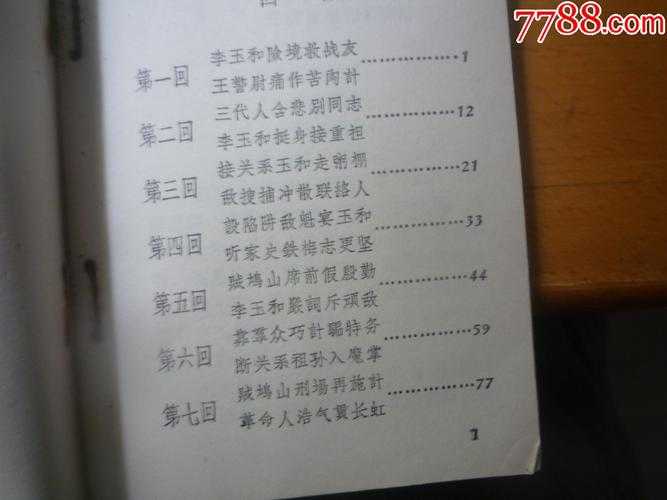 7788.com
第一回
李玉和險境救战友……………1
王警尉痛作苦肉計
第二回
三代人含悲別同志……………12
李玉和挺身接重担
第三回
接关系玉和走粥棚……………21
敌搜捕冲散联络人
第四回
設陷阱敌魁宴玉和……………33
听家史鉄梅志更坚
第五回
贼鳩山席前假殷勤……………44
李玉和嚴詞斥頑敌
第六回
靠羣众巧計騙特务……………59
断关系祖孙入魔掌
第七回
贼鳩山刑場再施計……………77
革命人浩气貫长虹
1